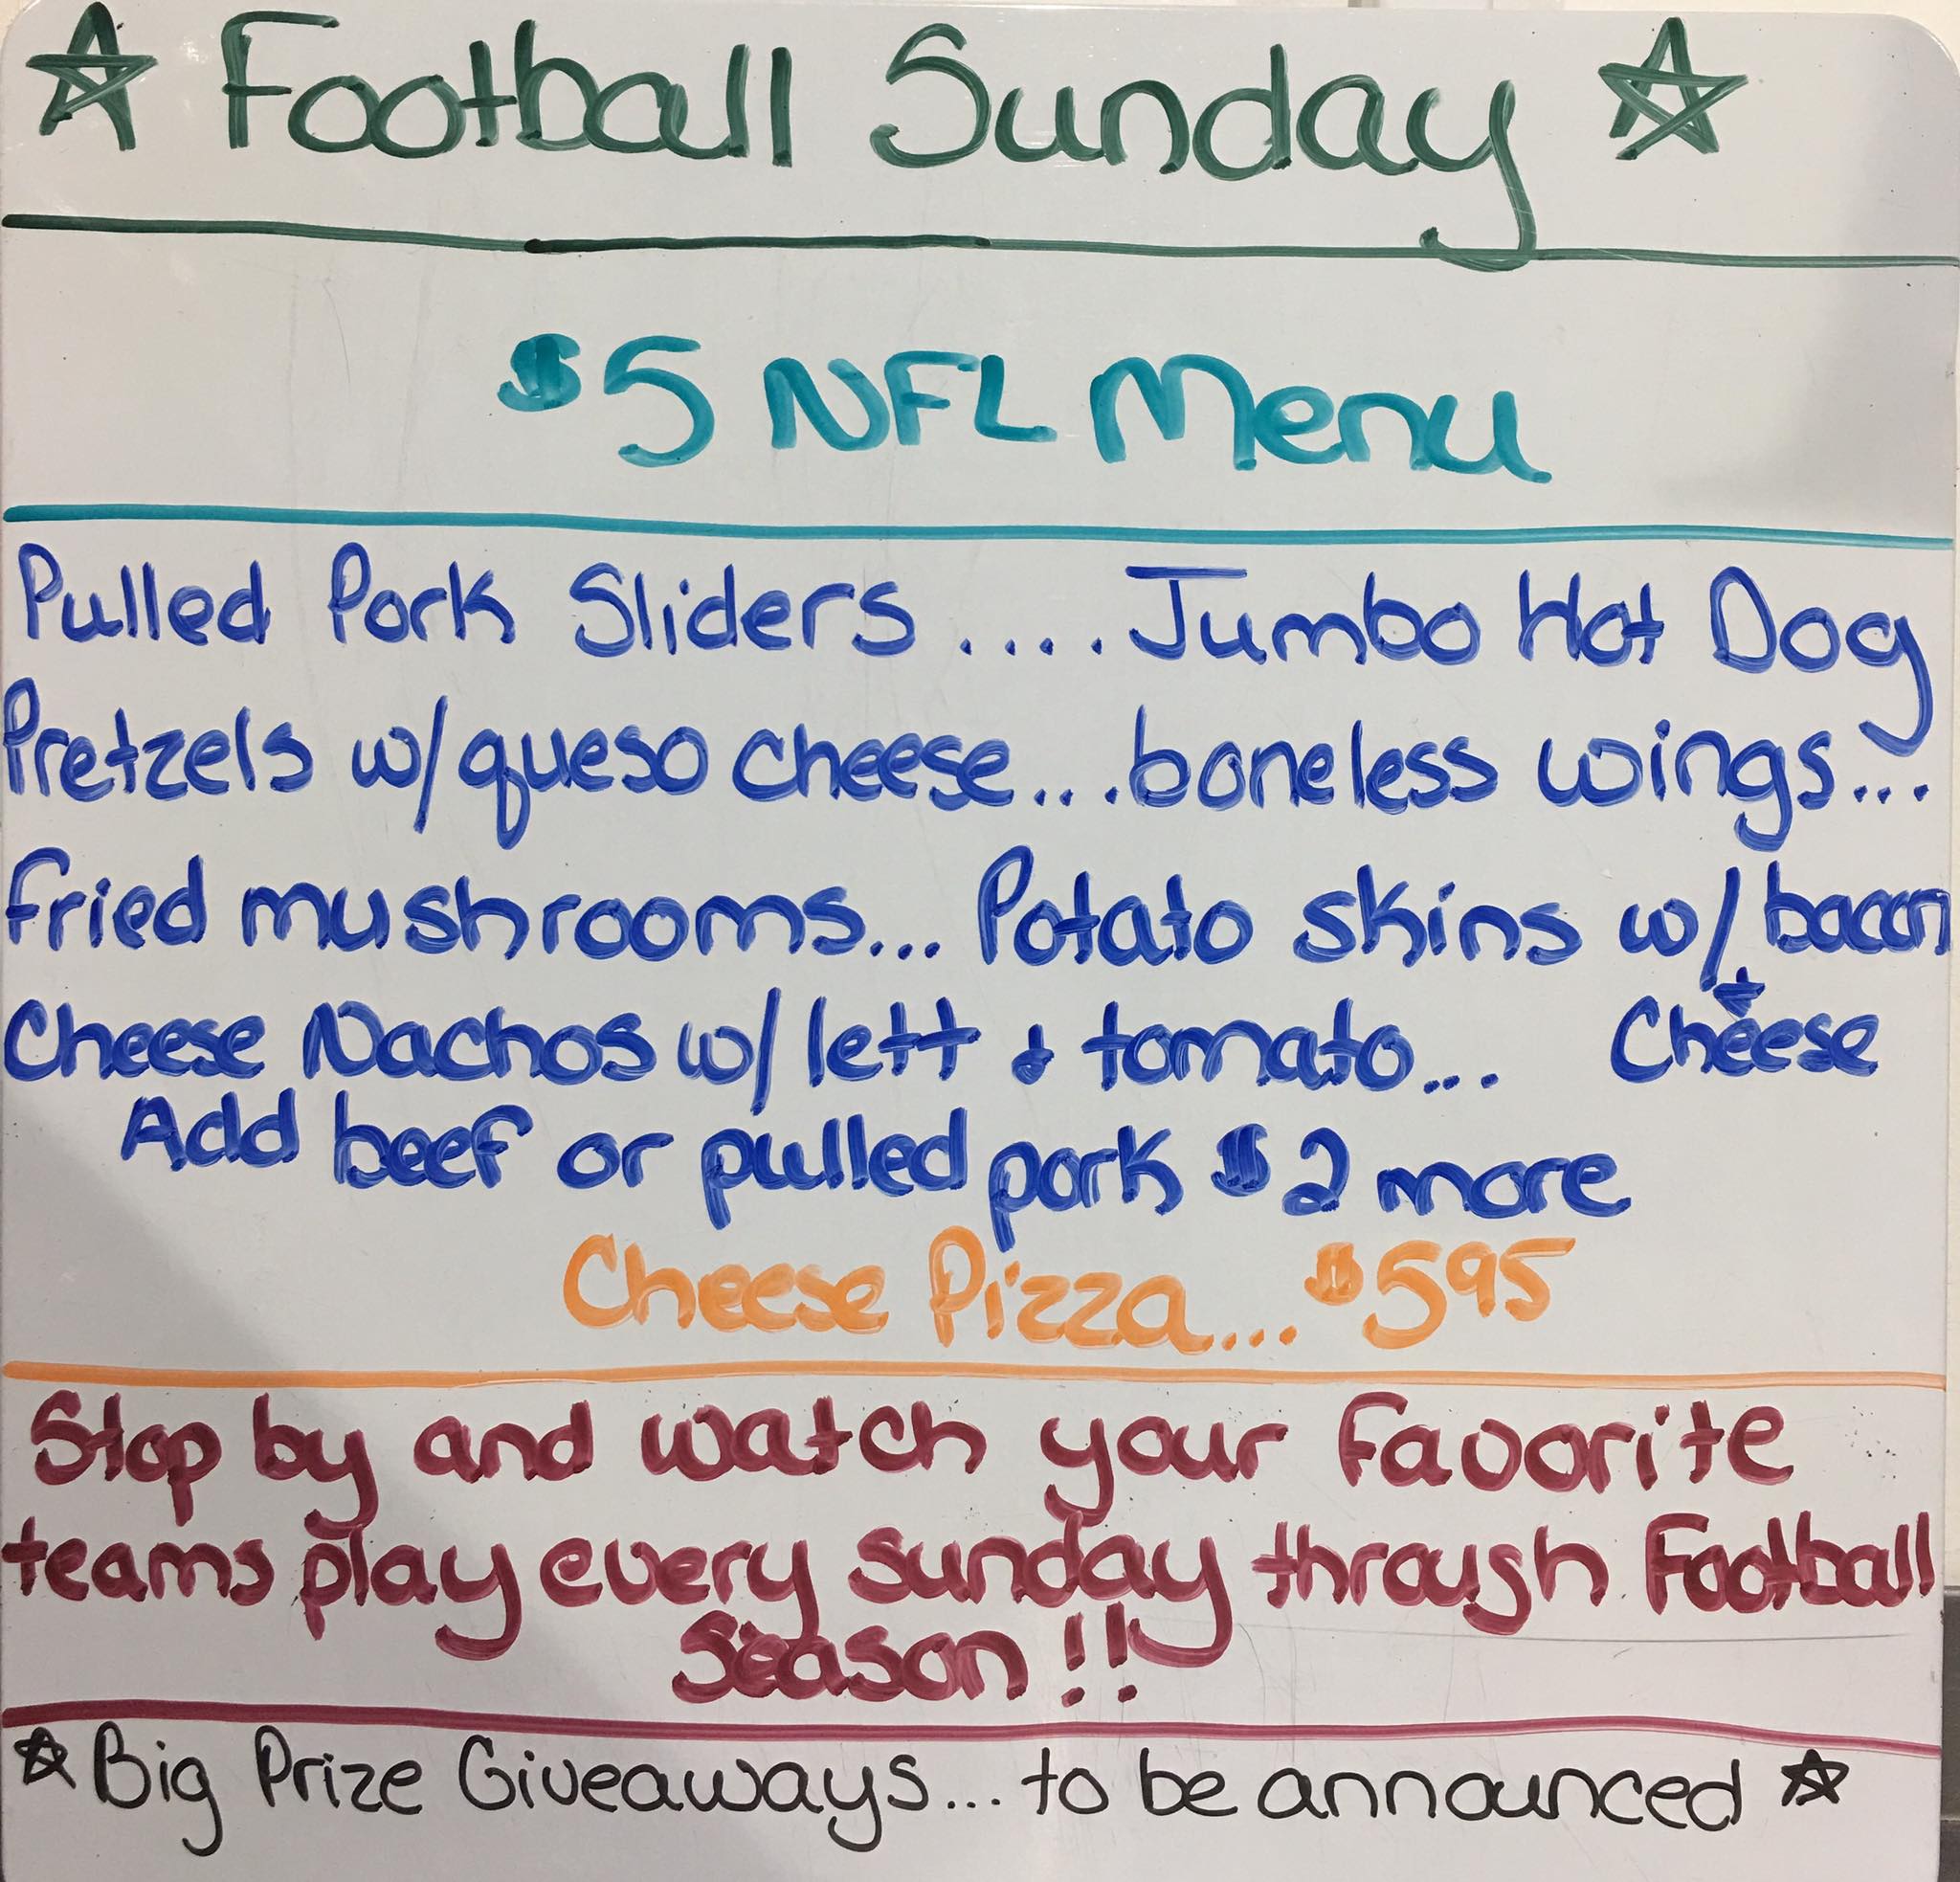 ☆ Football Sunday ☆
$5 NFL Menu
Pulled Pork Sliders ....Jumbo Hot Dog
Pretzels w/queso cheese...boneless wings...
fried mushrooms... Potato skins w/bacon
+ Cheese
Cheese Nachos w/lett + tomato...
Add beef or pulled pork $2 more
Cheese Pizza... $595
Stop by and watch your favorite
teams play every Sunday through Football
Season!!
☆ Big Prize Giveaways... to be announced ☆